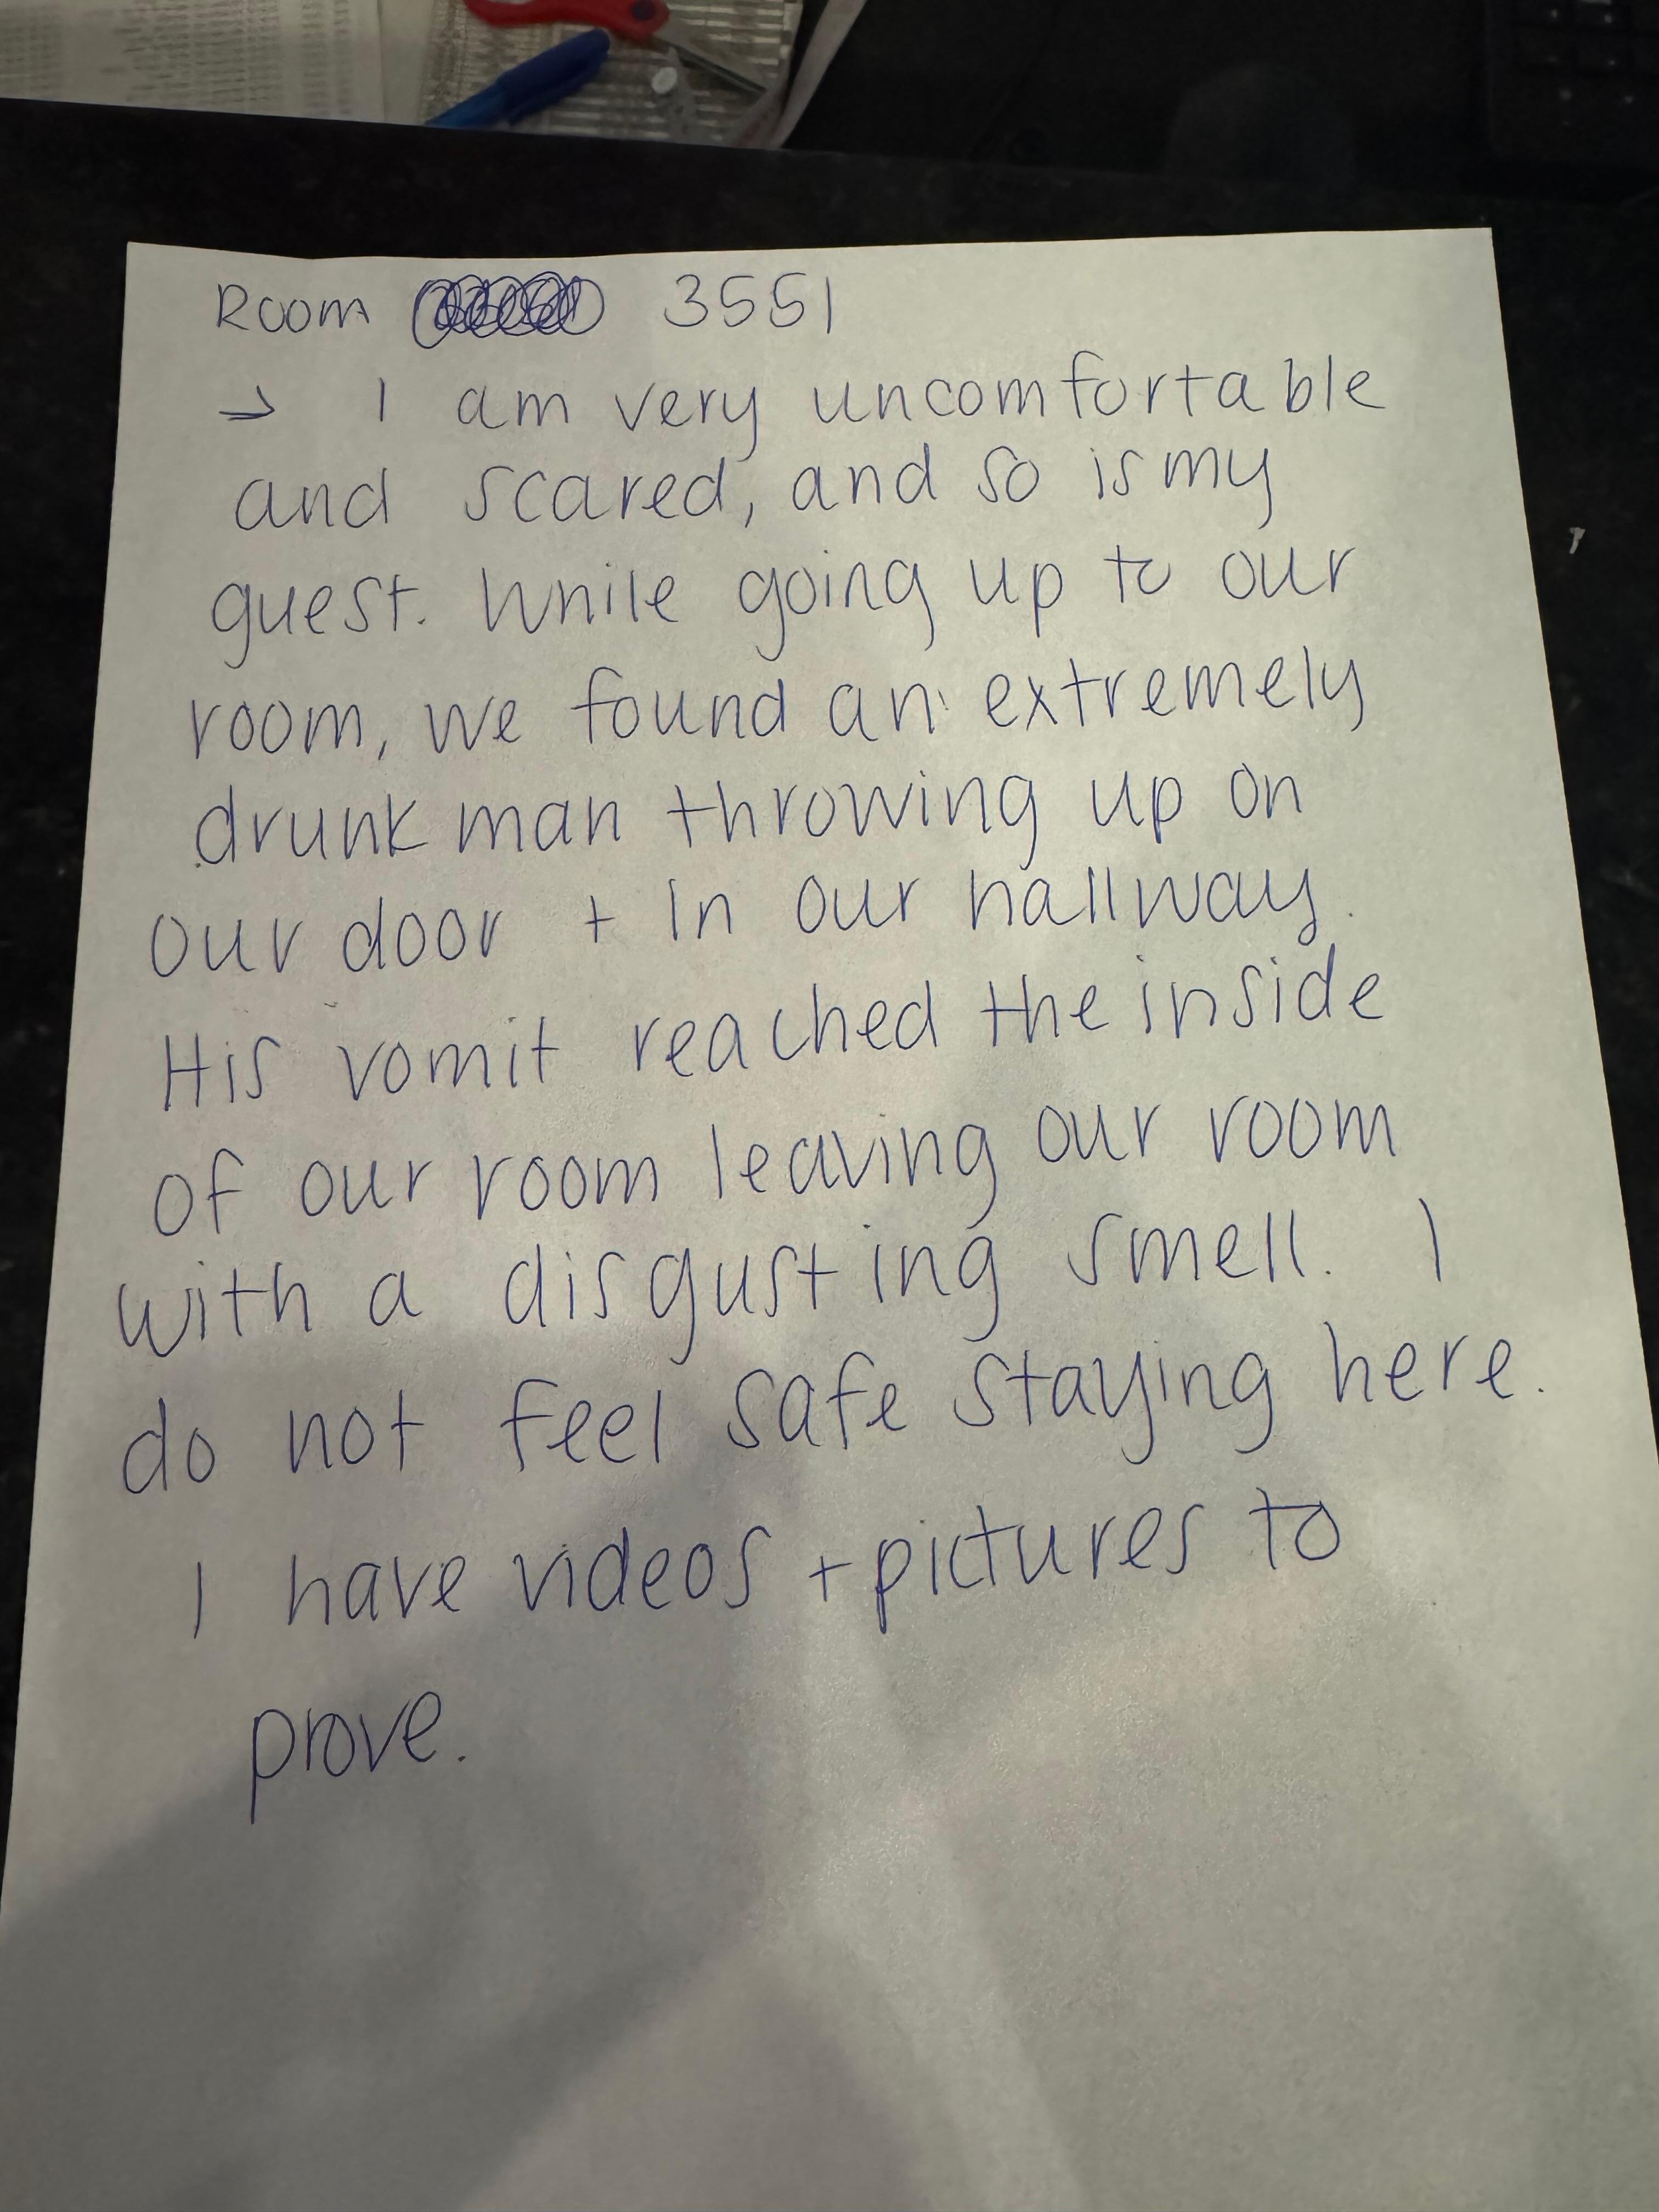 Room 3551
→ I am very uncomfortable
and scared, and so is my
guest. While going up to our
room, we found an extremely
drunk man throwing up on
our door + in our hallway.
His vomit reached the inside
of our room leaving our room
with a disgusting smell. I
do not feel safe staying here.
I have videos + pictures to
prove.